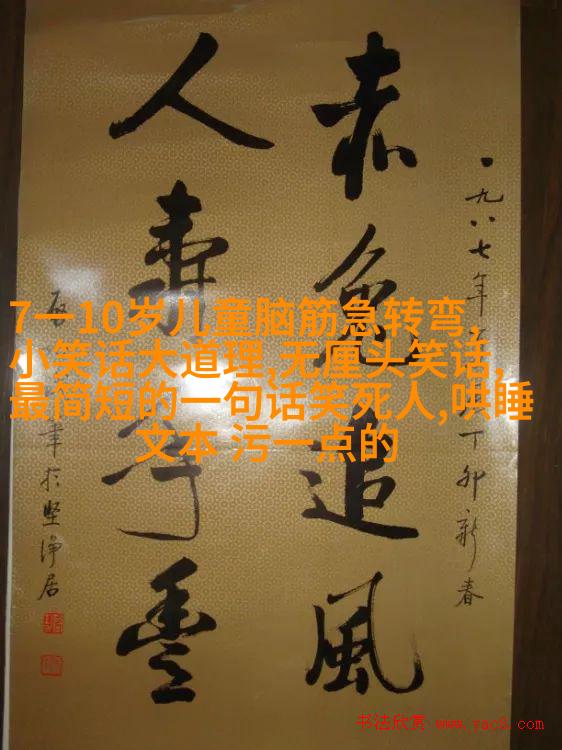 一九八七年
丁卯新春
赤兔追風
人寿年豊
於坚净居
7一10岁儿童脑筋急转弯,
小笑话大道理,无厘头笑话,
最简短的一句话笑死人,哄睡
文本 污一点的
书法欣赏 www.yac8.com